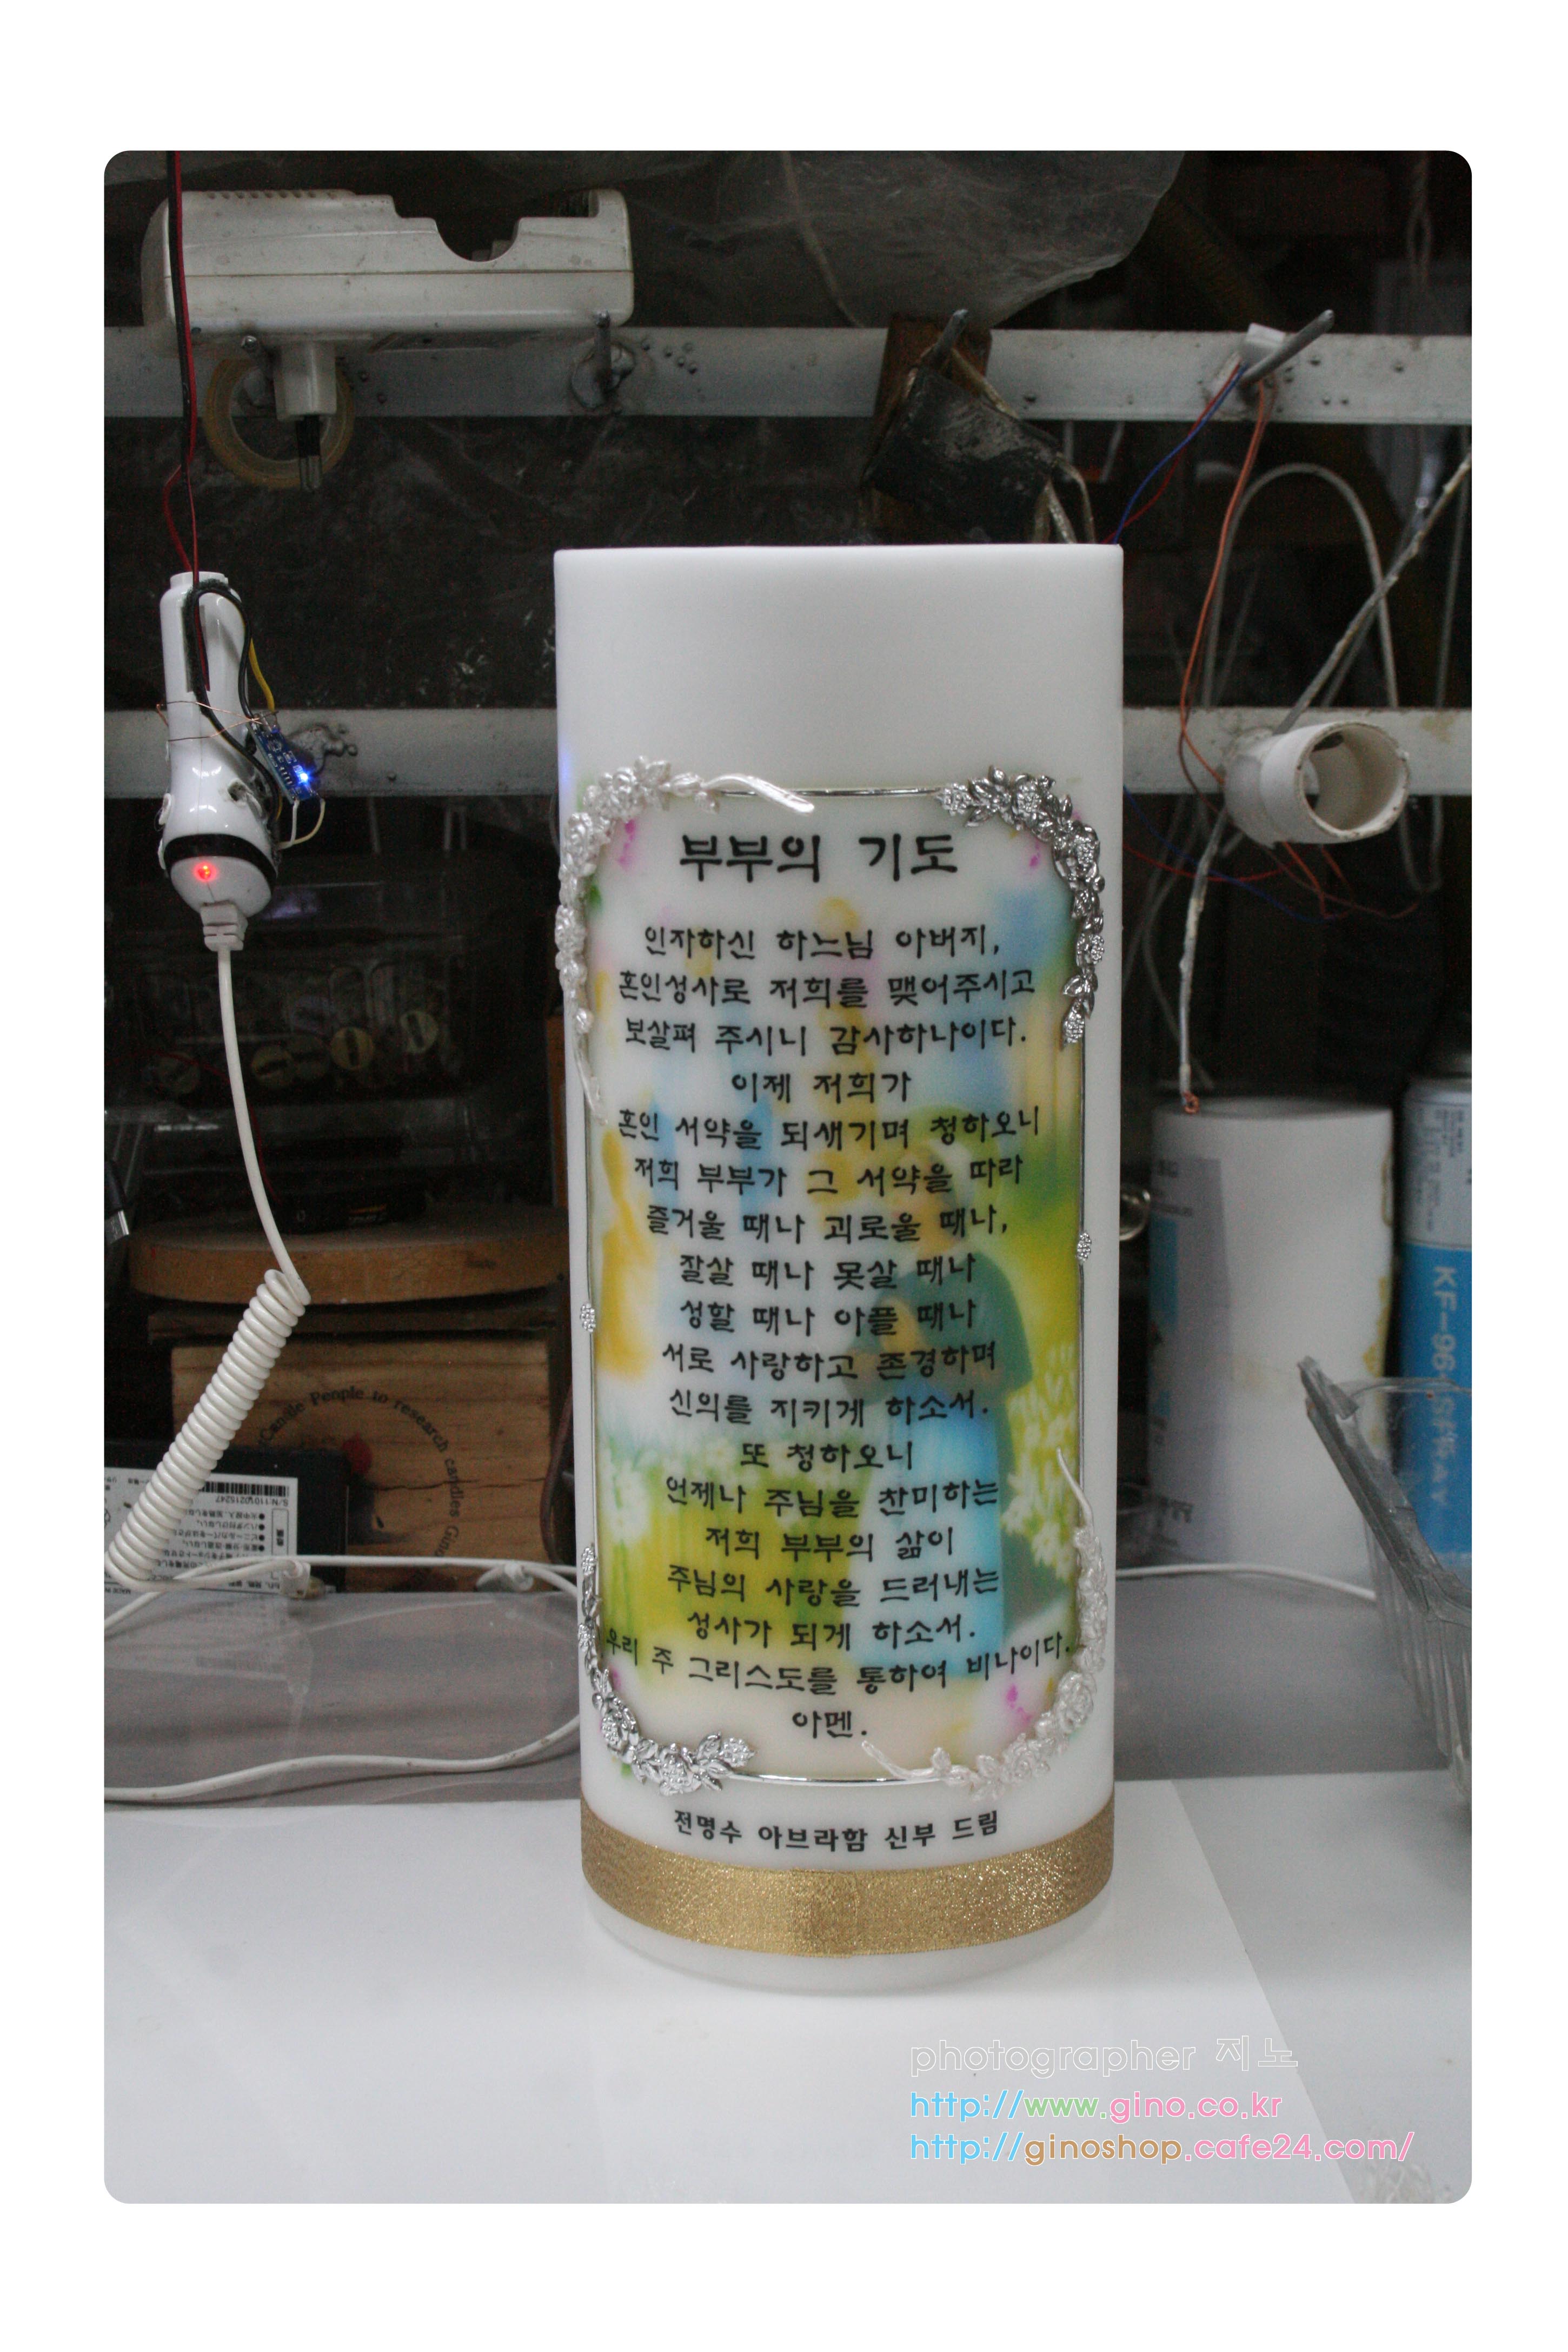 부부의 기도
인자하신 하느님 아버지,
혼인성사로 저희를 맺어주시고
보살펴 주시니 감사하나이다.
이제 저희가
혼인 서약을 되새기며 청하오니
저희 부부가 그 서약을 따라
즐거울 때나 괴로울 때나,
잘살 때나 못살 때나
성할 때나 아플 때나
서로 사랑하고 존경하며
신의를 지키게 하소서.
또 청하오니
언제나 주님을 찬미하는
저희 부부의 삶이
주님의 사랑을 드러내는
성사가 되게 하소서.
우리 주 그리스도를 통하여 비나이다.
아멘.
전명수 아브라함 신부 드림
Candle Penple to research candles Gino
S/N:11010215247
KF-96
photographer 지노
http://www.gino.co.kr
http://ginoshop.cafe24.com/